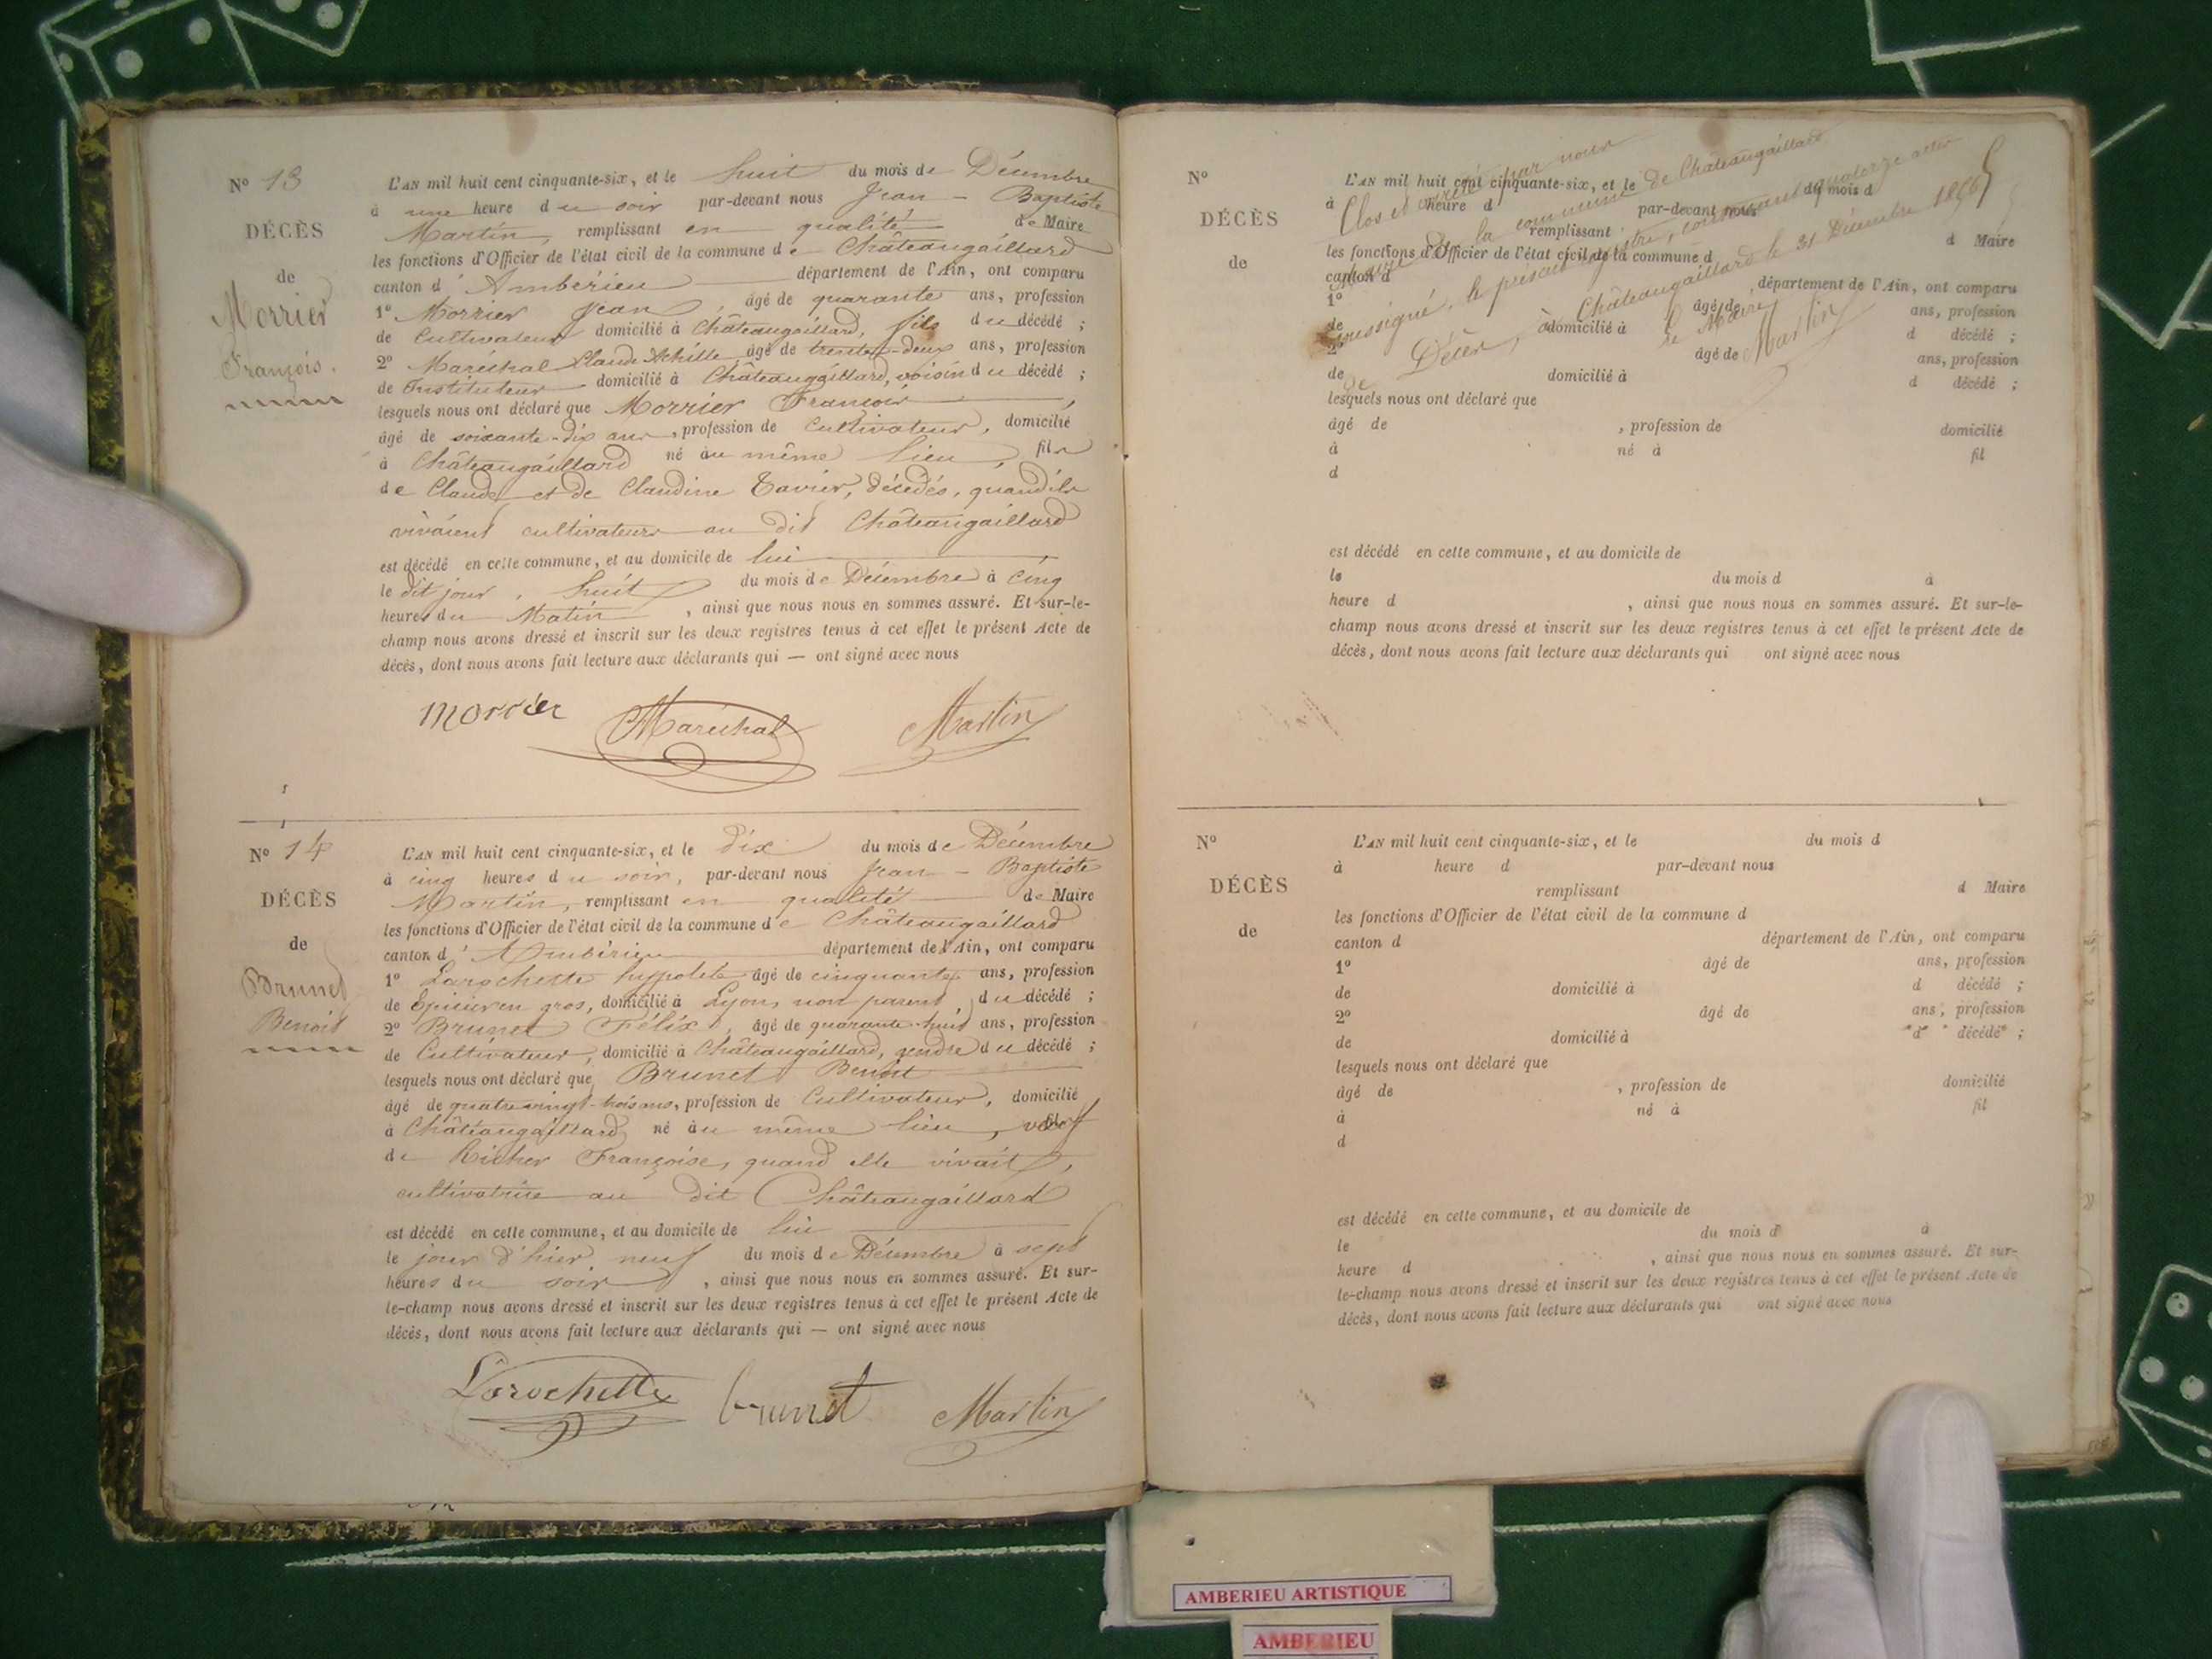 N° 13
DÉCÈS
de
Morrier
François.
L'AN mil huit cent cinquante-six, et le huit du mois de Décembre
à une heure du soir par-devant nous Jean - Baptiste
Martin, remplissant en qualité de Maire
les fonctions d'Officier de l'état civil de la commune de Châteaugaillard
canton d'Ambérieu département de l'Ain, ont comparu
1° Morrier Jean, âgé de quarante ans, profession
de Cultivateur domicilié à Châteaugaillard, fils du décédé ;
2° Maréchal Claude Achille âgé de trente-deux ans, profession
de Instituteur domicilié à Châteaugaillard, voisin du décédé ;
lesquels nous ont déclaré que Morrier François,
âgé de soixante-dix ans, profession de Cultivateur, domicilié
à Châteaugaillard né au même lieu, fils
de Claude et de Claudine Tavier, décédés, quand ils
vivaient cultivateurs au dit Châteaugaillard
est décédé en cette commune, et au domicile de lui
le dit jour, huit du mois de Décembre à cinq
heures du Matin, ainsi que nous nous en sommes assuré. Et sur-le-
champ nous avons dressé et inscrit sur les deux registres tenus à cet effet le présent Acte de
décès, dont nous avons fait lecture aux déclarants qui — ont signé avec nous
morrier Maréchal Martin
N° 14
DÉCÈS
de
Brunet
Benoit
L'AN mil huit cent cinquante-six, et le dix du mois de Décembre
à cinq heures du soir, par-devant nous Jean - Baptiste
Martin, remplissant en qualité de Maire
les fonctions d'Officier de l'état civil de la commune de Châteaugaillard
canton d'Ambérieu département de l'Ain, ont comparu
1° Larochette hyppolite âgé de cinquante ans, profession
de Epicier en gros, domicilié à Lyon, non parent du décédé ;
2° Brunet Félix, âgé de quarante-huit ans, profession
de Cultivateur, domicilié à Châteaugaillard, gendre du décédé ;
lesquels nous ont déclaré que Brunet Benoit
âgé de quatre vingt-trois ans, profession de Cultivateur, domicilié
à Châteaugaillard né au même lieu, veuf
de Richer Françoise, quand elle vivait,
cultivatrice au dit Châteaugaillard
est décédé en cette commune, et au domicile de lui
le jour d'hier neuf du mois de Décembre à sept
heures du soir, ainsi que nous nous en sommes assuré. Et sur-
le-champ nous avons dressé et inscrit sur les deux registres tenus à cet effet le présent Acte de
décès, dont nous avons fait lecture aux déclarants qui — ont signé avec nous
Larochette brunet Martin
N°
DÉCÈS
de
L'AN mil huit cent cinquante-six, et le du mois d
à heure d par-devant nous
remplissant d Maire
les fonctions d'Officier de l'état civil de la commune d
canton d département de l'Ain, ont comparu
1° âgé de ans, profession
de domicilié à d décédé ;
2° âgé de ans, profession
de domicilié à d décédé ;
lesquels nous ont déclaré que
âgé de , profession de domicilié
à né à fil
d
Clos et arrêté par nous
Maire de la commune de Châteaugaillard
soussigné, le présent registre, contenant quatorze actes
de Décès, à Châteaugaillard le 31 Décembre 1856
le Maire
Martin
est décédé en cette commune, et au domicile de
le du mois d à
heure d , ainsi que nous nous en sommes assuré. Et sur-le-
champ nous avons dressé et inscrit sur les deux registres tenus à cet effet le présent Acte de
décès, dont nous avons fait lecture aux déclarants qui ont signé avec nous
N°
DÉCÈS
de
L'AN mil huit cent cinquante-six, et le du mois d
à heure d par-devant nous
remplissant d Maire
les fonctions d'Officier de l'état civil de la commune d
canton d département de l'Ain, ont comparu
1° âgé de ans, profession
de domicilié à d décédé ;
2° âgé de ans, profession
de domicilié à d décédé ;
lesquels nous ont déclaré que
âgé de , profession de domicilié
à né à fil
d
est décédé en cette commune, et au domicile de
le du mois d à
heure d , ainsi que nous nous en sommes assuré. Et sur-
le-champ nous avons dressé et inscrit sur les deux registres tenus à cet effet le présent Acte de
décès, dont nous avons fait lecture aux déclarants qui ont signé avec nous
AMBERIEU ARTISTIQUE
AMBERIEU